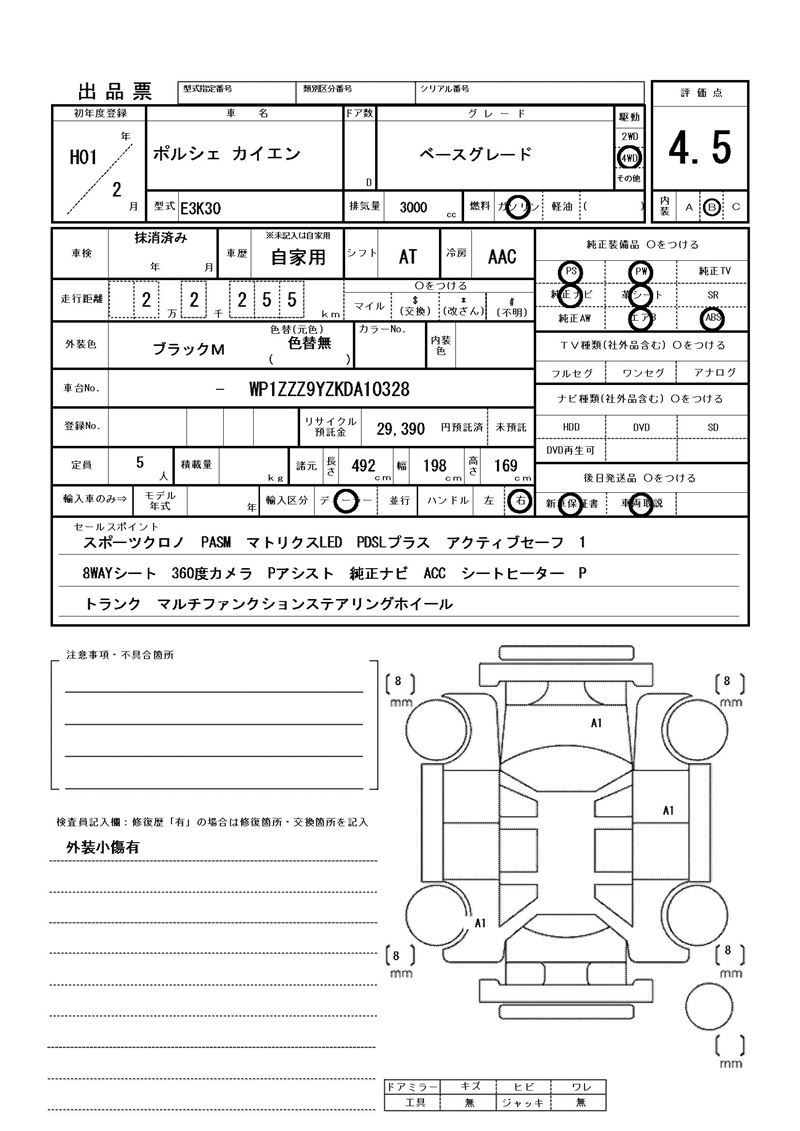 出品票
型式指定番号 類別区分番号 シリアル番号
評価点
4.5
内装 A B C
初年度登録 車名 ドア数 グレード 駆動
H01 年 2 月
ポルシェ カイエン
D
ベースグレード
2WD
4WD
その他
型式 E3K30 排気量 3000 cc 燃料 ガソリン 軽油 ( )
車検 抹消済み 年 月
車歴 ※未記入は自家用 自家用
シフト AT 冷房 AAC
走行距離 2 万 2 千 2 5 5 km
〇をつける
マイル $(交換) *(改ざん) #(不明)
外装色 ブラックM 色替(元色) 色替無 ( )
カラーNo. 内装色
車台No. － WP1ZZZ9YZKDA10328
登録No. リサイクル預託金 29,390 円預託済 未預託
定員 5 人 積載量 kg 諸元 長さ 492 cm 幅 198 cm 高さ 169 cm
輸入車のみ⇒ モデル年式 年 輸入区分 ディーラー 並行 ハンドル 左 右
純正装備品 〇をつける
PS PW 純正TV
純正ナビ 革シート SR
純正AW エアB ABS
TV種類(社外品含む) 〇をつける
フルセグ ワンセグ アナログ
ナビ種類(社外品含む) 〇をつける
HDD DVD SD
DVD再生可
後日発送品 〇をつける
新車保証書 車両取説
セールスポイント
スポーツクロノ PASM マトリクスLED PDSLプラス アクティブセーフ 1
8WAYシート 360度カメラ Pアシスト 純正ナビ ACC シートヒーター P
トランク マルチファンクションステアリングホイール
注意事項・不具合箇所
検査員記入欄：修復歴「有」の場合は修復箇所・交換箇所を記入
外装小傷有
8 mm
8 mm
A1
A1
A1
8 mm
8 mm
mm
ドアミラー キズ ヒビ ワレ
工具 無 ジャッキ 無